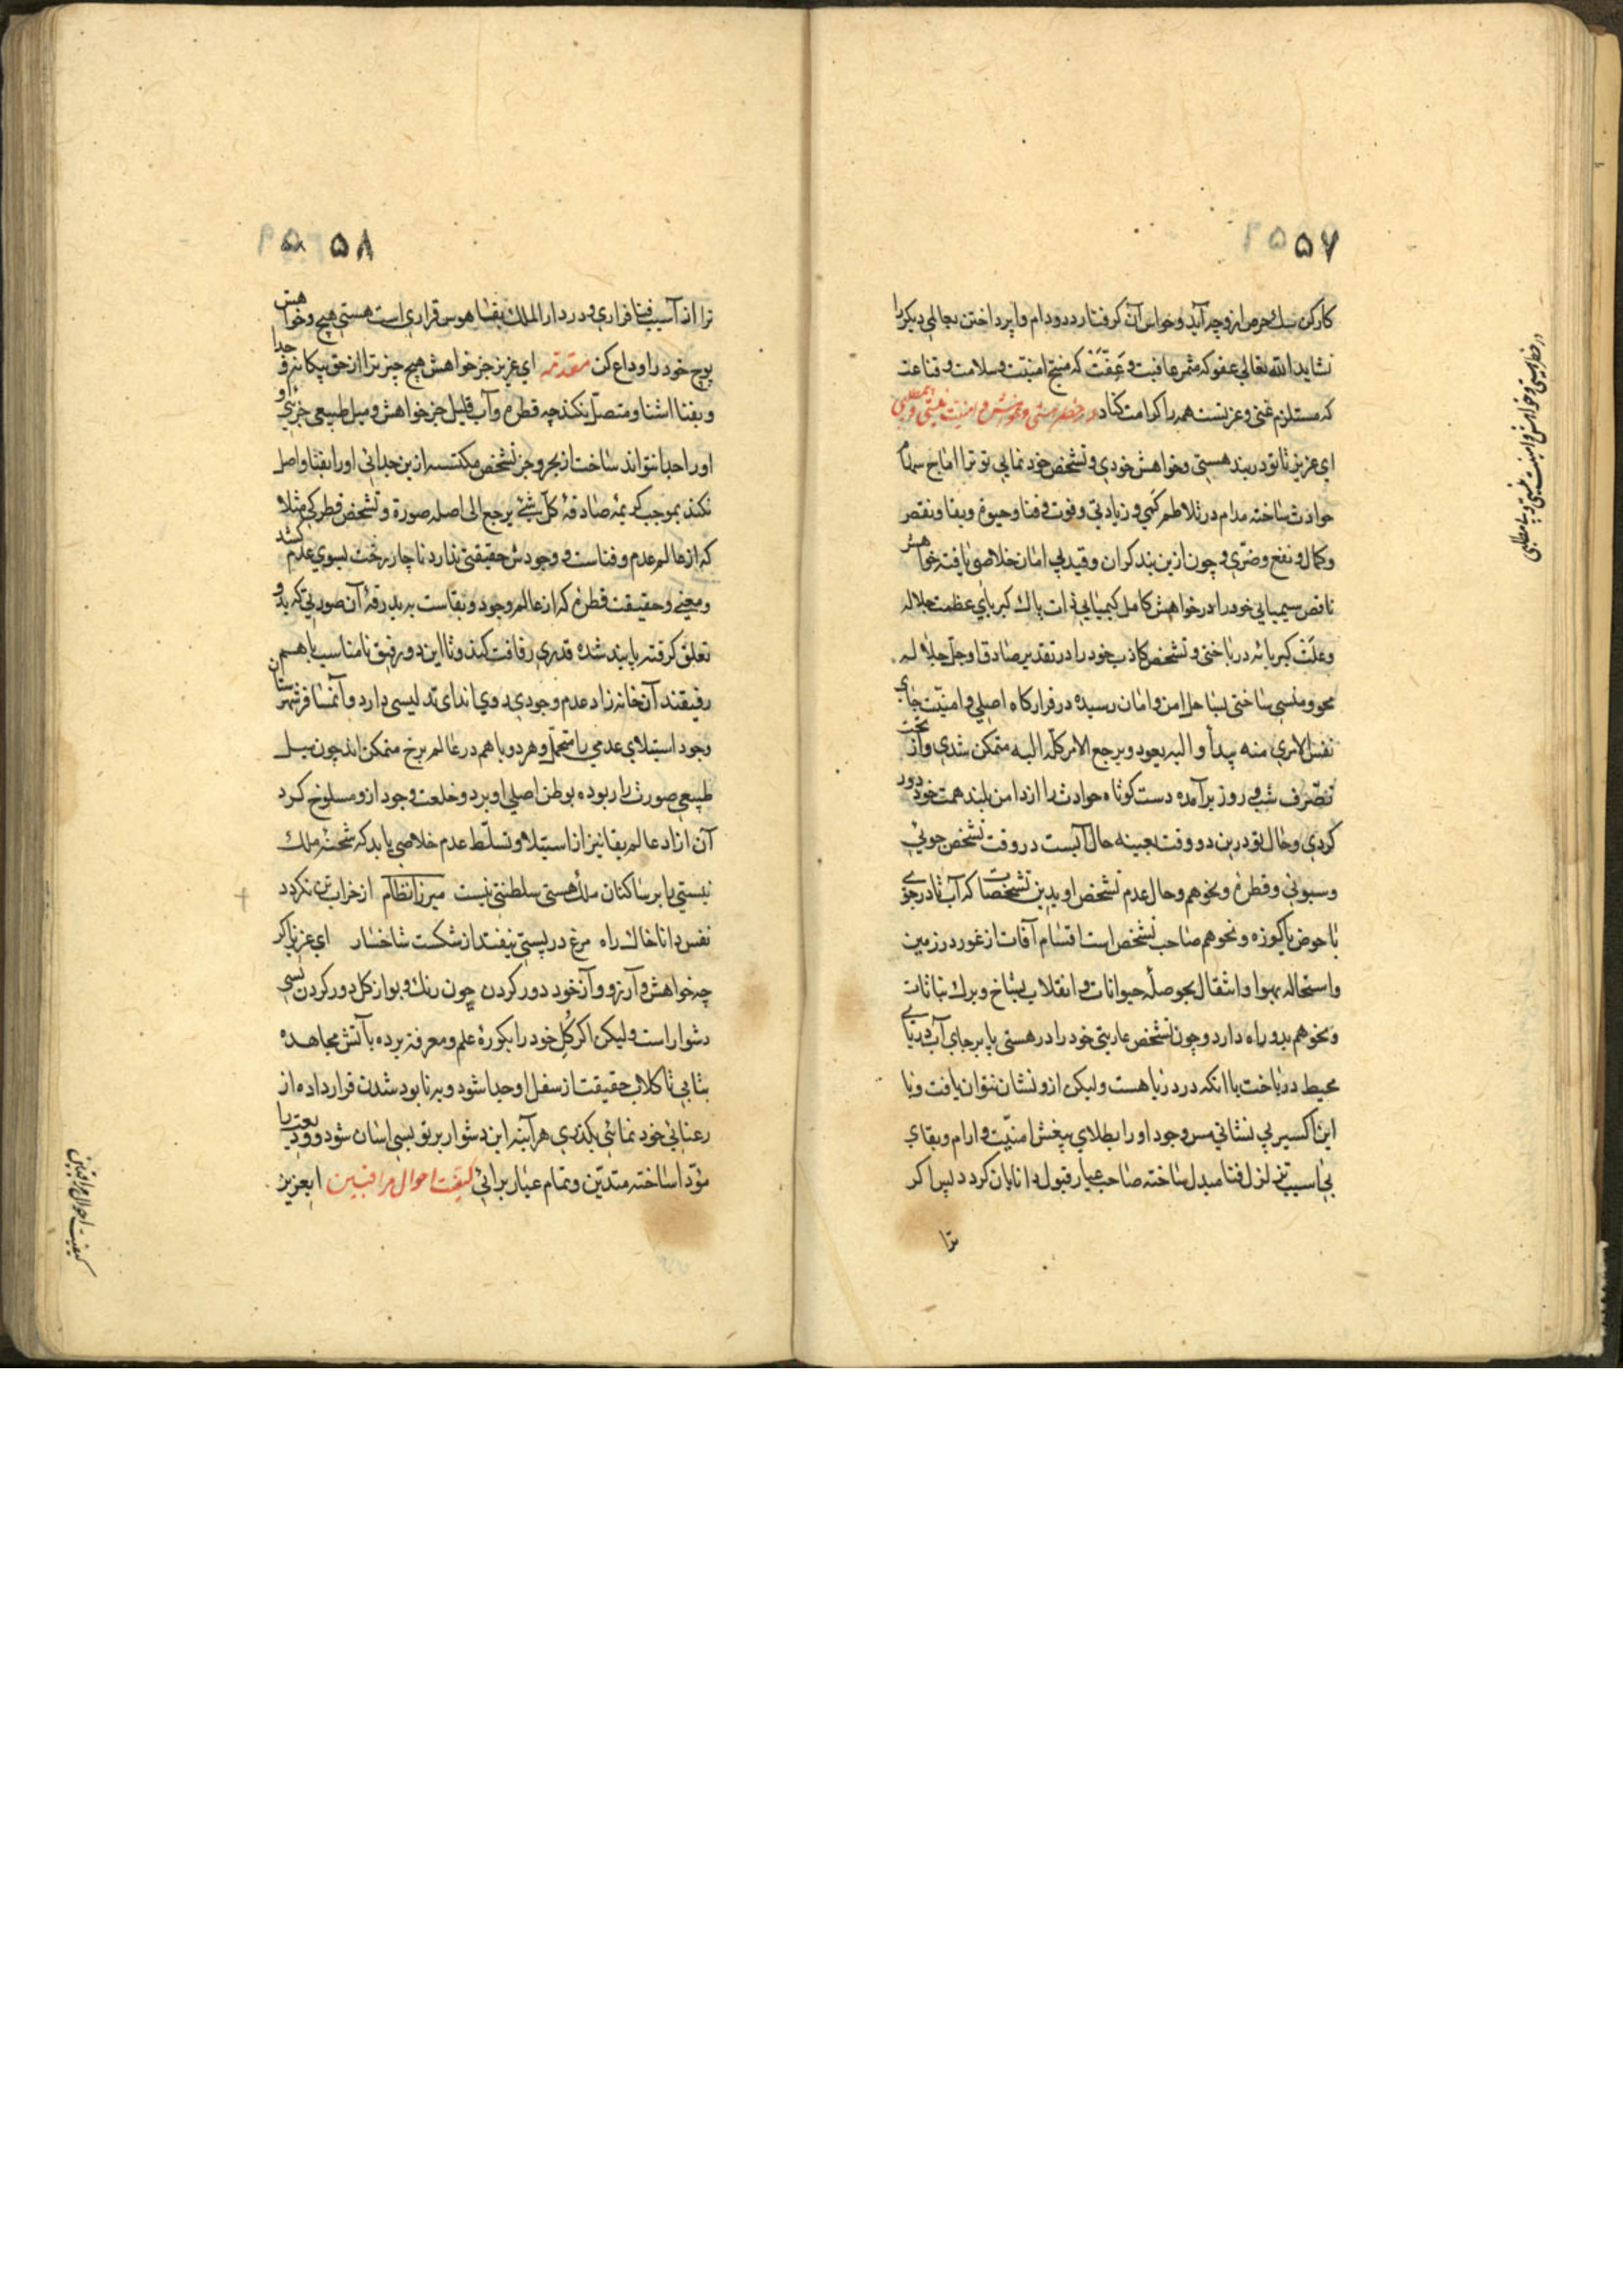 ۵۷
کارکن سک حرص ازو چه آید و خواس آن گرفتار دد و دام واپرداختن بحالی دیگر را
نشاید الله تعالی عفو که مثمر عافیت و عفّت که منتج امنیّت و سلامت و قناعت
که مستلزم غنی و عزتست همه را کرامت کناد در خطر هستی و خواهش و امنیت نیستی و بیمطلبی
ای عزیز تا تو در بند هستی و خواهش خودی و تشخص خود نمایی تو ترا اماج سهام
حوادث ساخته مدام در تلاطم کمی و زیادتی و فوت و فنا و حیوة و بقا و نقص
و کمال و نفع و ضرّی و چون ازین بند گران و قید بی امان خلاصی یافته خواهش
ناقص سیمیایی خود را در خواهش کامل کیمیایی ذات پاک کبریای عظمت جلاله
وعلت کبریائه درباختی و تشخص کاذب خود را در تقدیر صادق او جل جلاله
محو و منسی ساختی بساحل امن و امان رسیده در قرارگاه اصلی و امنیّت جای
نفس الامری منه یبدأ و الیه یعود و یرجع الامر کلّه الیه متمکن شدی و از تحت
تصّرف شب و روز برآمده دست کوتاه حوادث را از دامن بلند همت خود دور
کردی و حال تو درین دو وقت بعینه حال آبست در وقت تشخص جوئی
و سبوئی و قطره و نحوهم و حال عدم تشخص او بدین تشخصات که آب تا در جوی
یا حوض یا کوزه و نحوهم صاحب تشخص است اقسام آفات از غور در زمین
و استحاله بهوا و انتقال بحوصله حیوانات و انقلاب بشاخ و برک نباتات
و نحوهم بدو راه دارد و چون تشخص عاریتی خود را در هستی پا برجای آب دریای
محیط درباخت با انکه در دریا هست و لیکن ازو نشان نتوان یافت و با
این اکسیر بی نشانی مس وجود او را بطلای بیغش امنیّت و ارام و بقای
بی اسیب تزلزل فنا مبدل ساخته صاحب عیار قبول دانایان کردد پس اگر
ترا
در خطر هستی و خواهش و امنیت نیستی و بی مطلبی
۵۸
ترا از آسیب فنا فراری و در دار الملک بقا هوس قراری است هستی هیچ و خواهش
پوچ خود را وداع کن مقدّمه ای عزیز جز خواهش هیچ چیز ترا از حق بیکانه و جدا
و بفنا اشنا و متصل نکند چه قطره و آب قلیل جز خواهش و میل طبیعی جزئی و
او را جدا نتواند ساخت از بحر و جز تشخص مکتسبه ازین جدائی او را بفنا واصل
نکند بموجب کریمه صادقهٔ کلّ شیئ یرجع الی اصله صورة و تشخص قطرکی مثلا
که از عالم عدم و فناست و وجودش حقیقتی ندارد ناچار رخت بسوی عدم کشد
و معنی و حقیقت قطره که از عالم وجود و بقاست به بدرقهٔ آن صورتی که بدو
تعلق گرفته پابند شده قدری رفاقت کند و تا این دو رفیق نامناسب باهم
رفیقند آن خانه زاد عدم وجودی بدوی اندای تدلیسی دارد و آن مسافر شهرستان
وجود استیلای عدمی را متحمل و هر دو باهم در عالم برخ متمکن اند چون میل
طبیعی صورت را ربوده بوطن اصلی او برد و خلعت وجود ازو مسلوخ کرد
آن ازاد عالم بقا نیز از استیلا و تسلّط عدم خلاصی یابد که شحنهٔ ملک
نیستی را بر ساکنان ملک هستی سلطنتی نیست میرزا نظام از خراب تن نکردد
نفس دانا خاک راه مرغ در پستی نیفتد از شکست شاخسار ای عزیز اگر
چه خواهش و آرزو و آز خود دور کردن چون رنک و بو از کل دور کردن بسی
دشوار است و لیکن اگر کُل خود را بکورهٔ علم و معرفة برده بآتش مجاهده
بتابی تا کلاب حقیقت از سفل او جدا شود و بر نابود شدن قرار داده از
رعنائی خود نمائی بکذری هر آینه این دشوار بر تو بسی اسان شود و ودیعت را
مؤدّا ساخته متدیّن و تمام عیار برائی کیفیت احوال مراقبین ایعزیز
کیفیت احوال مراقبین